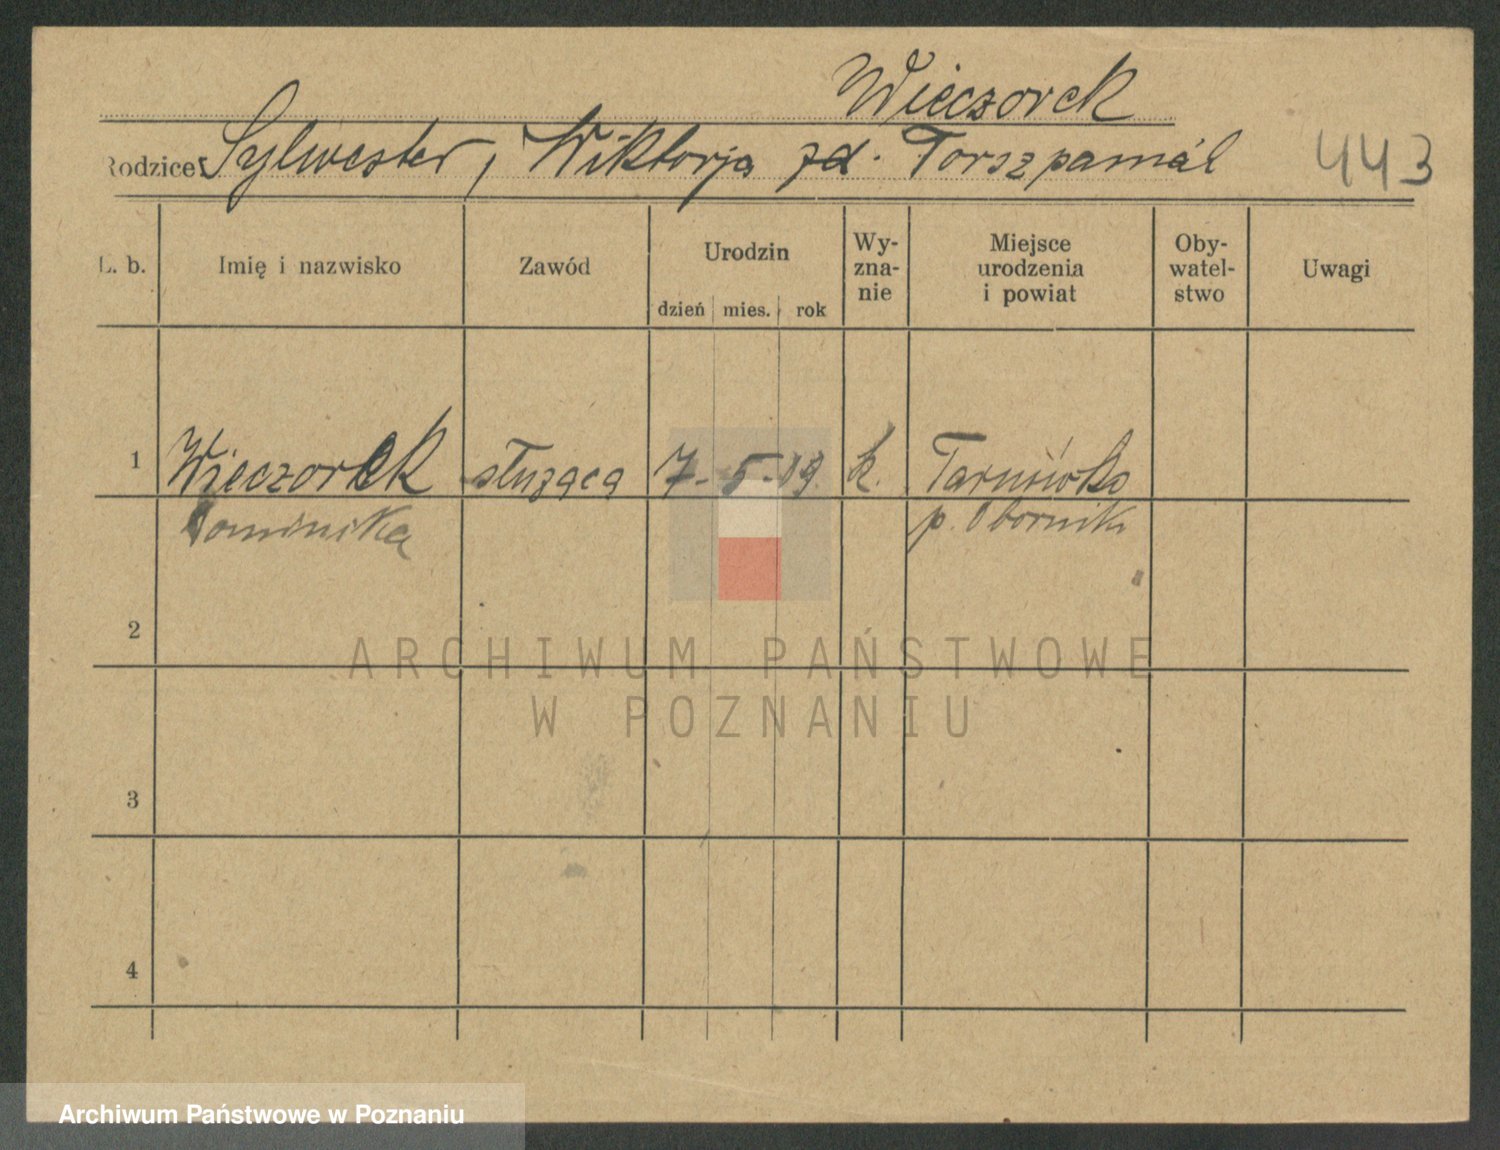 Wieczorek
Rodzice: Sylwester, Wiktorja zd. Torszpamál
443
L. b. Imię i nazwisko Zawód Urodzin dzień mies. rok Wy-zna-nie Miejsce urodzenia i powiat Oby-watel-stwo Uwagi
1 Wieczorek służąca 7-5-19. k. Tarnówko
Dominika p. Obornik
2
3
4
ARCHIWUM PAŃSTWOWE
W POZNANIU
Archiwum Państwowe w Poznaniu